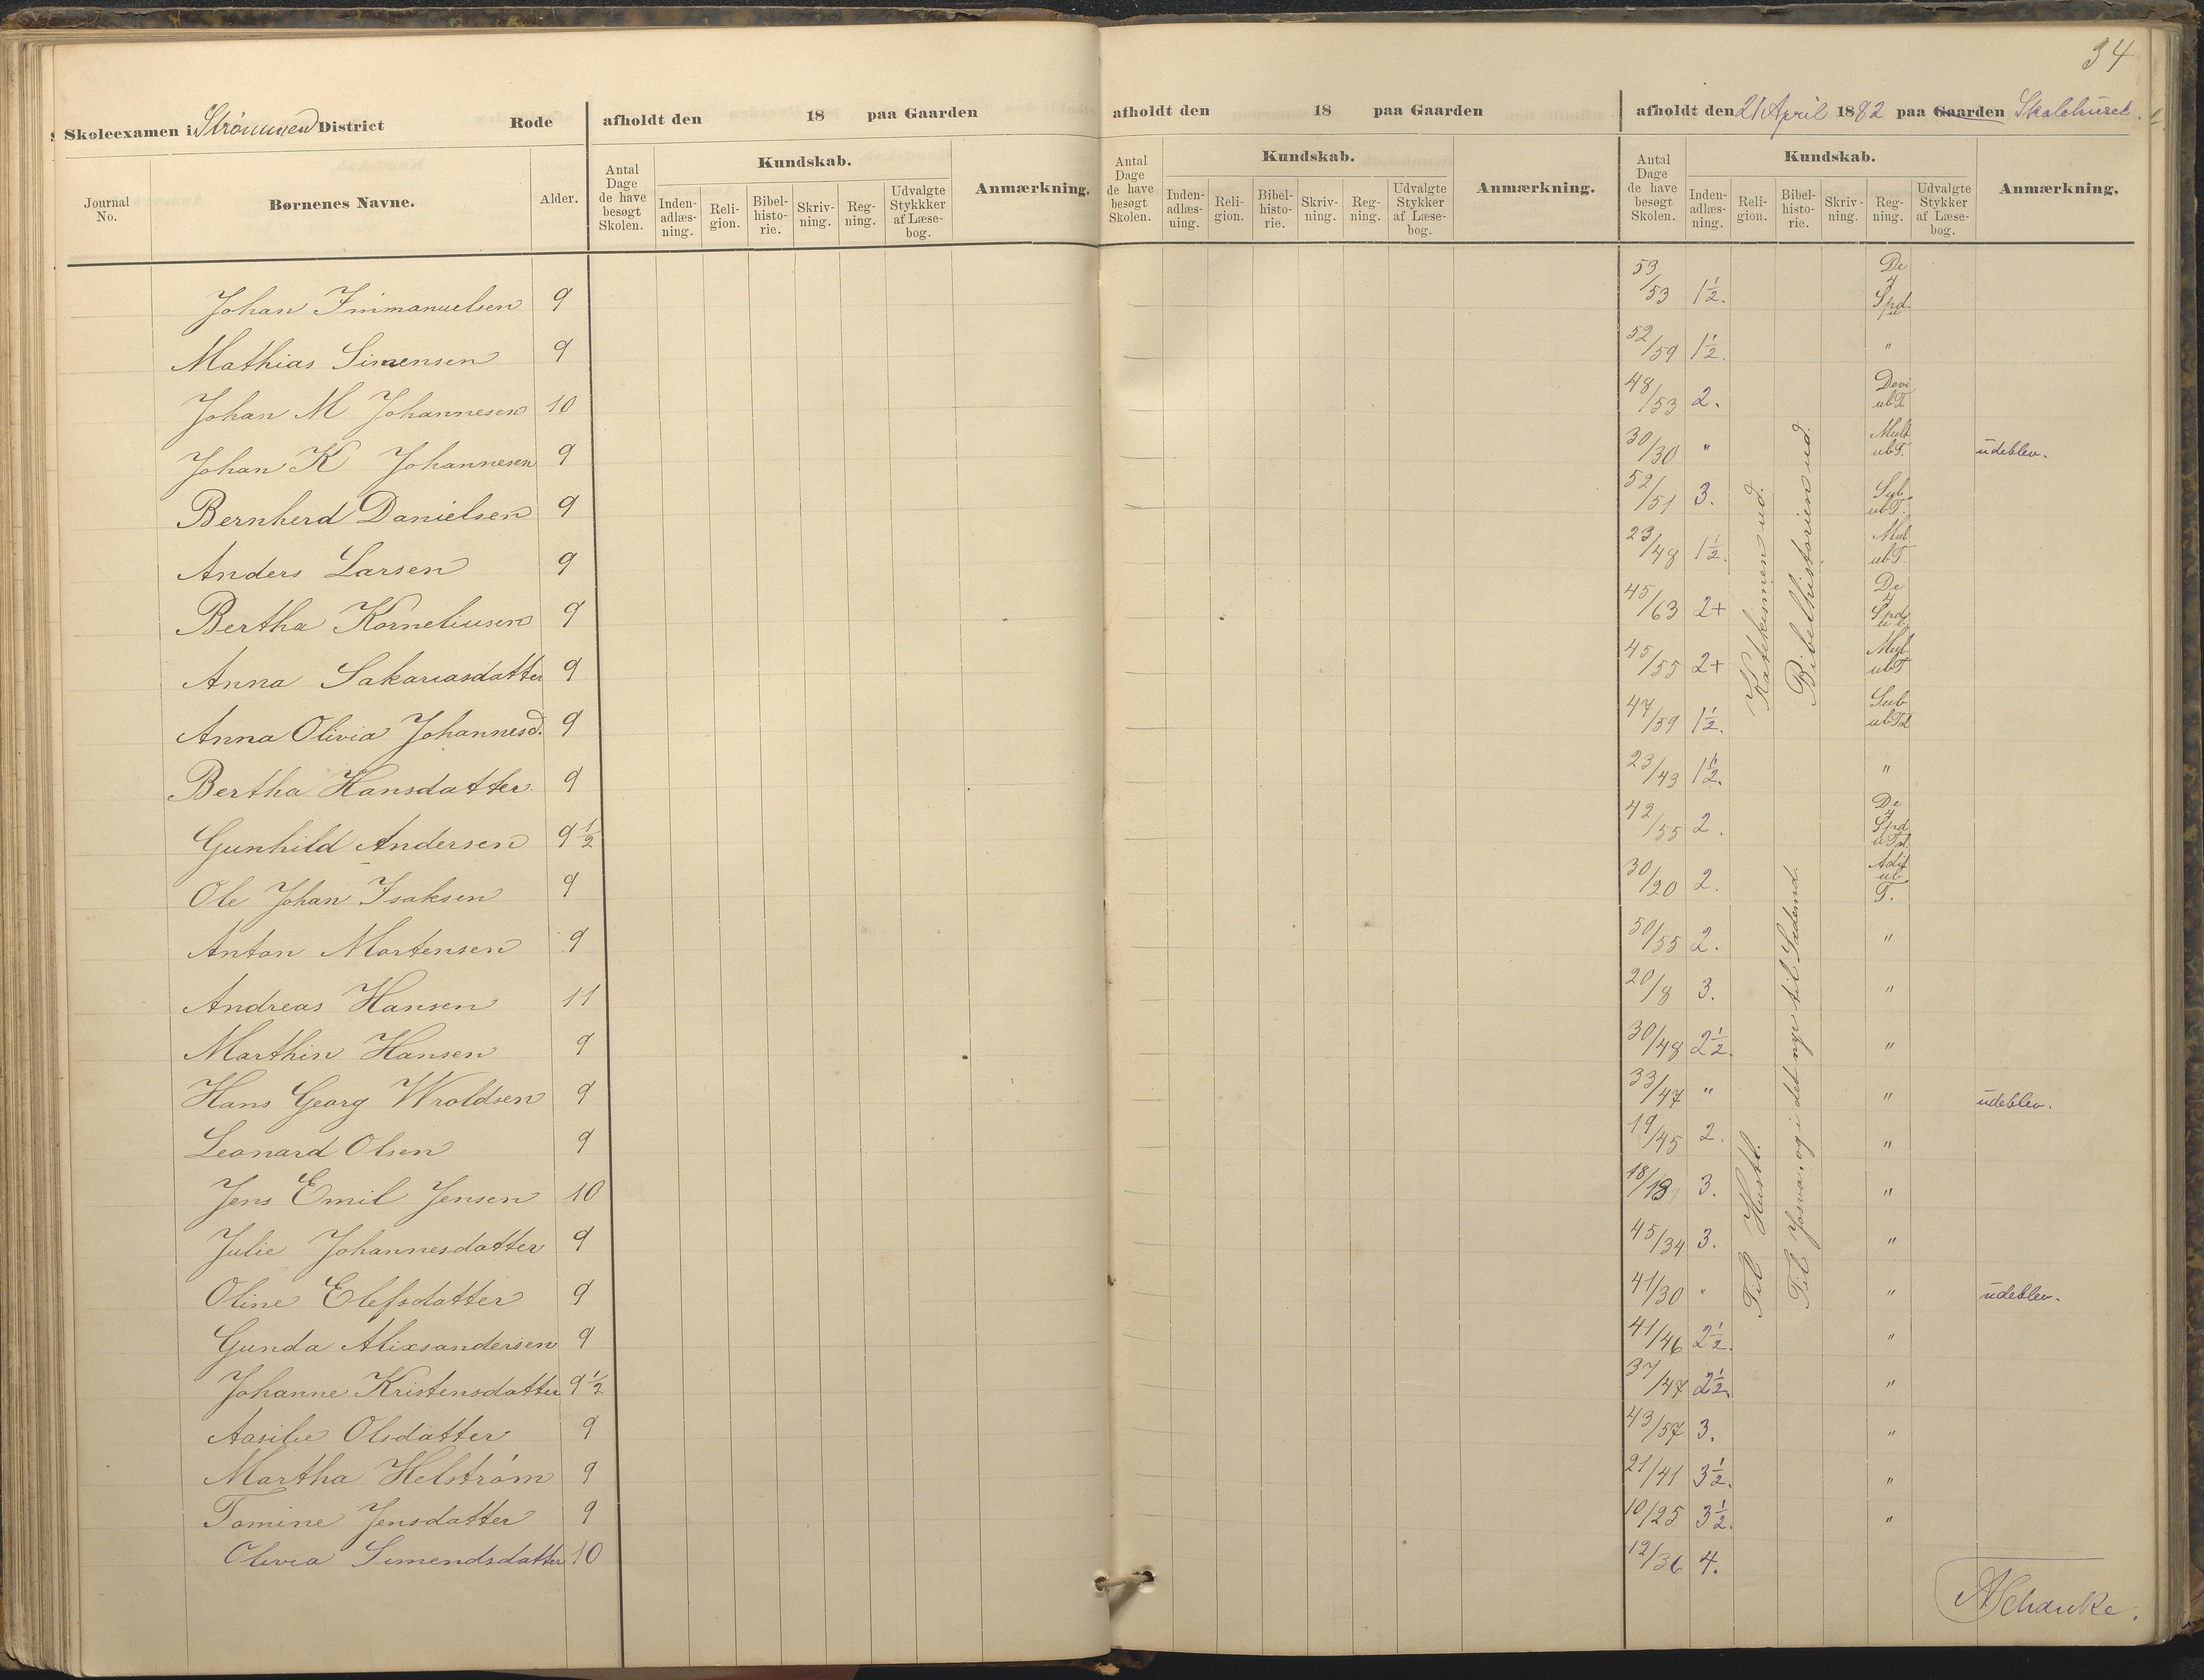 34
Skoleexamen i Strømmen District Rode afholdt den 18 paa Gaarden afholdt den 18 paa Gaarden afholdt den 21 April 1882 paa Gaarden Skolehuset.
Journal No. Børnenes Navne. Alder. Antal Dage de have besøgt Skolen. Kundskab. Inden-adlæs-ning. Reli-gion. Bibel-histo-rie. Skriv-ning. Reg-ning. Udvalgte Stykkker af Læse-bog. Anmærkning.
Antal Dage de have besøgt Skolen. Kundskab. Inden-adlæs-ning. Reli-gion. Bibel-histo-rie. Skriv-ning. Reg-ning. Udvalgte Stykker af Læse-bog. Anmærkning.
Antal Dage de have besøgt Skolen. Kundskab. Inden-adlæs-ning. Reli-gion. Bibel-histo-rie. Skriv-ning. Reg-ning. Udvalgte Stykker af Læse-bog. Anmærkning.
Johan Immanuelsen 9 53/53 1½. De 4 Spd.
Mathias Simensen 9 52/59 1½. "
Johan M Johannesen 10 48/53 2. Devi ubT.
Johan K Johannesen 9 30/30 " Mult ubT. udeblev.
Bernherd Danielsen 9 52/51 3. Sub ubT.
Anders Larsen 9 23/48 1½. Mul ubT.
Bertha Korneliusen 9 45/63 2+ De 4 Spd
Anna Sakariasdatter 9 45/55 2+ Mul ubT
Anna Olivia Johannesd. 9 47/59 1½. Sub ubTal
Bertha Hansdatter 9 23/43 1½. "
Gunhild Andersen 9½ 42/55 2. De 4 Spd uTal.
Ole Johan Isaksen 9 30/20 2. Adit ub T.
Anton Mortensen 9 50/55 2. "
Andreas Hansen 11 20/8 3. "
Marthin Hansen 9 30/48 2½. "
Hans Georg Wroldsen 9 33/47 " " udeblev.
Leonard Olsen 9 19/45 2. "
Jens Emil Jensen 10 18/18 3. "
Julie Johannesdatter 9 45/34 3. "
Oline Elefsdatter 9 41/30 " " udeblev.
Gunda Alixsandersen 9 41/46 2½. "
Johanne Kristensdatter 9½ 37/47 2½. "
Aasilie Olsdatter 9 43/57 3. "
Martha Helstrøm 9 21/41 3½. "
Tomine Jensdatter 9 10/25 3½. "
Olivia Simendsdatter 10 12/36 4.
Katekismen ud.
Bibelhistorien ud.
Til Hustl.
Til Josva, og i det nye til
ASchanke.